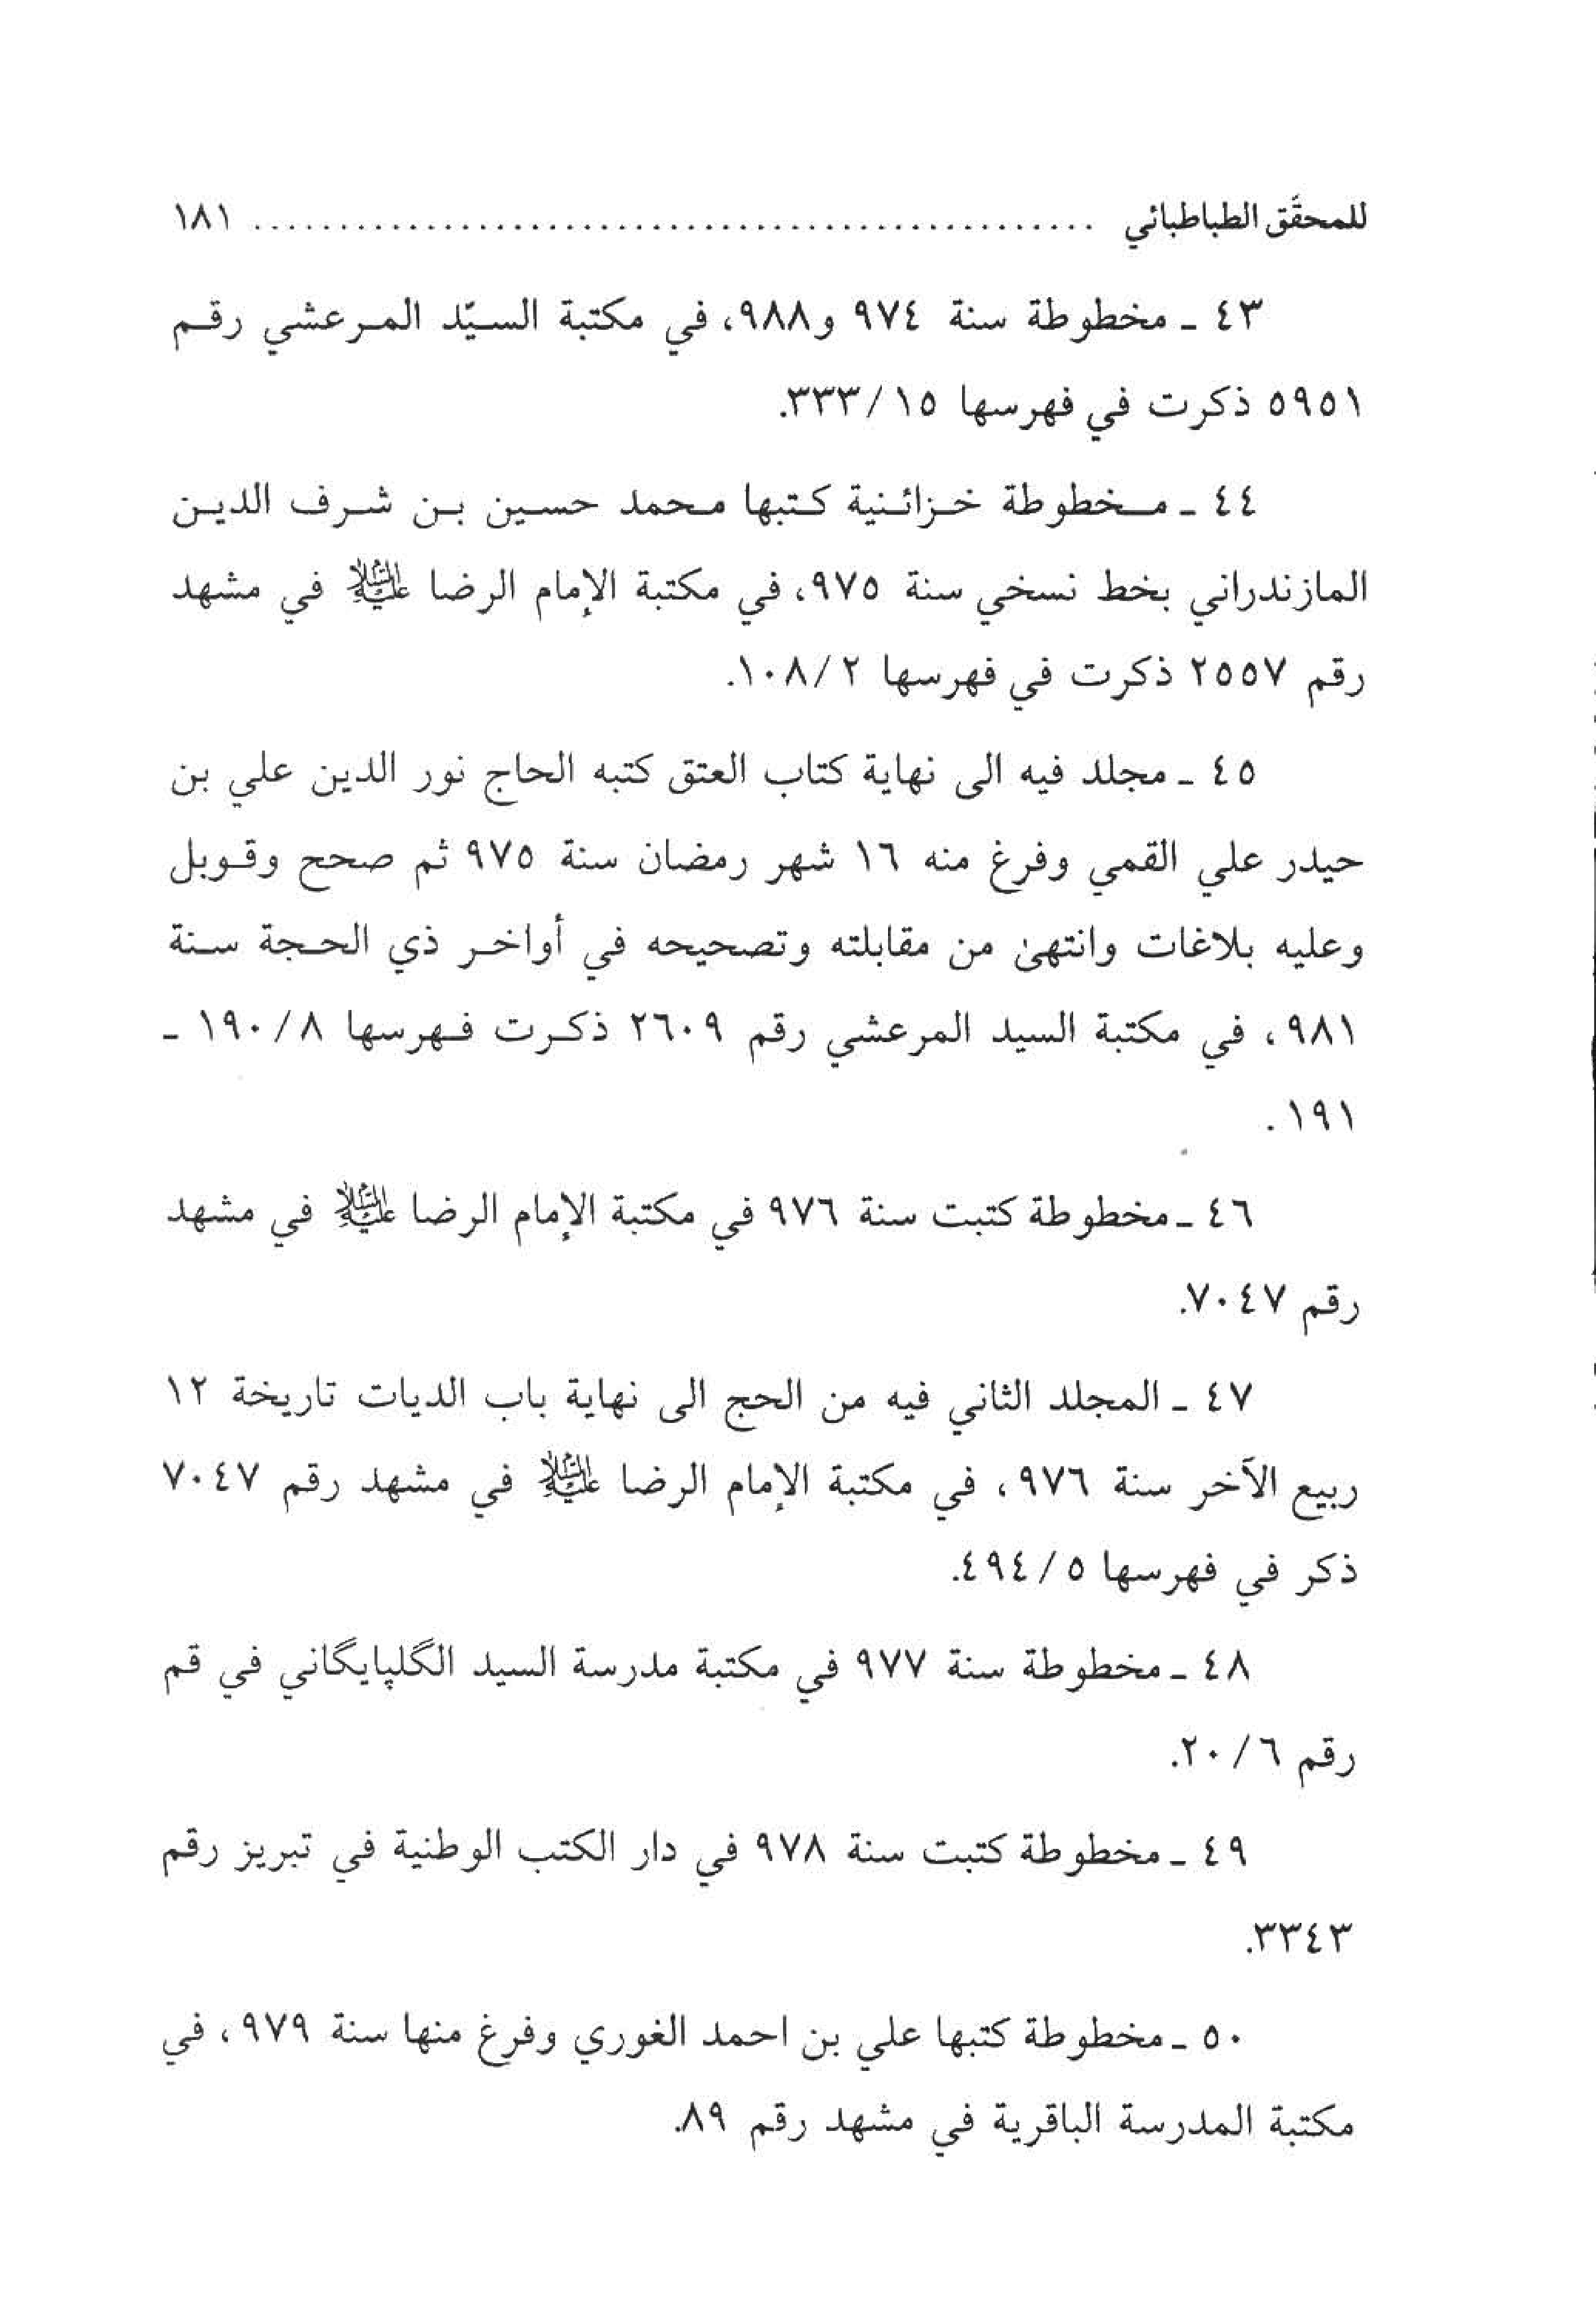 للمحقَّق الطباطبائي ................................................. ١٨١
٤٣ ـ مخطوطة سنة ٩٧٤ و٩٨٨، في مكتبة السيّد المرعشي رقم
٥٩٥١ ذكرت في فهرسها ١٥ /٣٣٣.
٤٤ ـ مخطوطة خزائنية كتبها محمد حسين بن شرف الدين
المازندراني بخط نسخي سنة ٩٧٥، في مكتبة الإمام الرضا عليه السلام في مشهد
رقم ٢٥٥٧ ذكرت في فهرسها ٢ /١٠٨.
٤٥ ـ مجلد فيه الى نهاية كتاب العتق كتبه الحاج نور الدين علي بن
حيدر علي القمي وفرغ منه ١٦ شهر رمضان سنة ٩٧٥ ثم صحح وقوبل
وعليه بلاغات وانتهىٰ من مقابلته وتصحيحه في أواخر ذي الحجة سنة
٩٨١، في مكتبة السيد المرعشي رقم ٢٦٠٩ ذكرت فهرسها ٨ /١٩٠ ـ
١٩١ .
٤٦ ـ مخطوطة كتبت سنة ٩٧٦ في مكتبة الإمام الرضا عليه السلام في مشهد
رقم ٧٠٤٧.
٤٧ ـ المجلد الثاني فيه من الحج الى نهاية باب الديات تاريخة ١٢
ربيع الآخر سنة ٩٧٦، في مكتبة الإمام الرضا عليه السلام في مشهد رقم ٧٠٤٧
ذكر في فهرسها ٥ /٤٩٤.
٤٨ ـ مخطوطة سنة ٩٧٧ في مكتبة مدرسة السيد الگلپايگاني في قم
رقم ٦ /٢٠.
٤٩ ـ مخطوطة كتبت سنة ٩٧٨ في دار الكتب الوطنية في تبريز رقم
٣٣٤٣.
٥٠ ـ مخطوطة كتبها علي بن احمد الغوري وفرغ منها سنة ٩٧٩، في
مكتبة المدرسة الباقرية في مشهد رقم ٨٩.